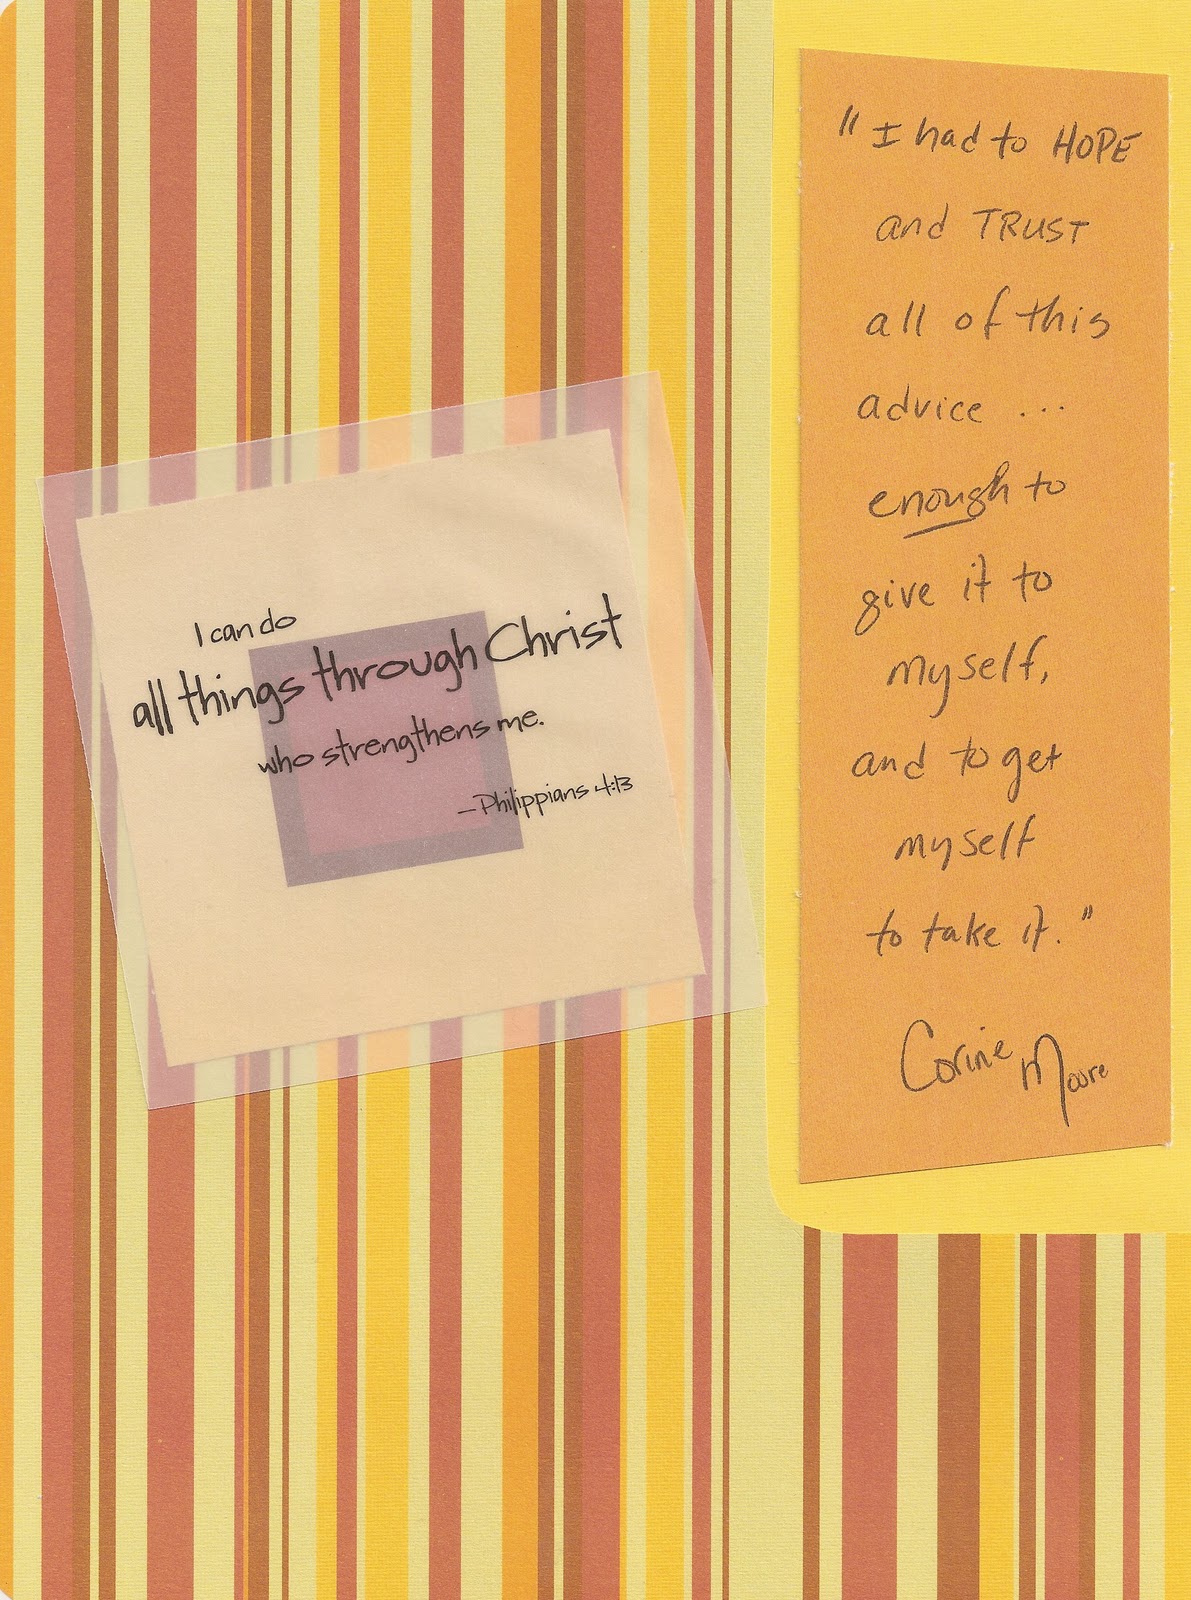 I can do
all things through Christ
who strengthens me.
—Philippians 4:13
"I had to HOPE
and TRUST
all of this
advice ...
enough to
give it to
myself,
and to get
myself
to take it."
Corine Moore